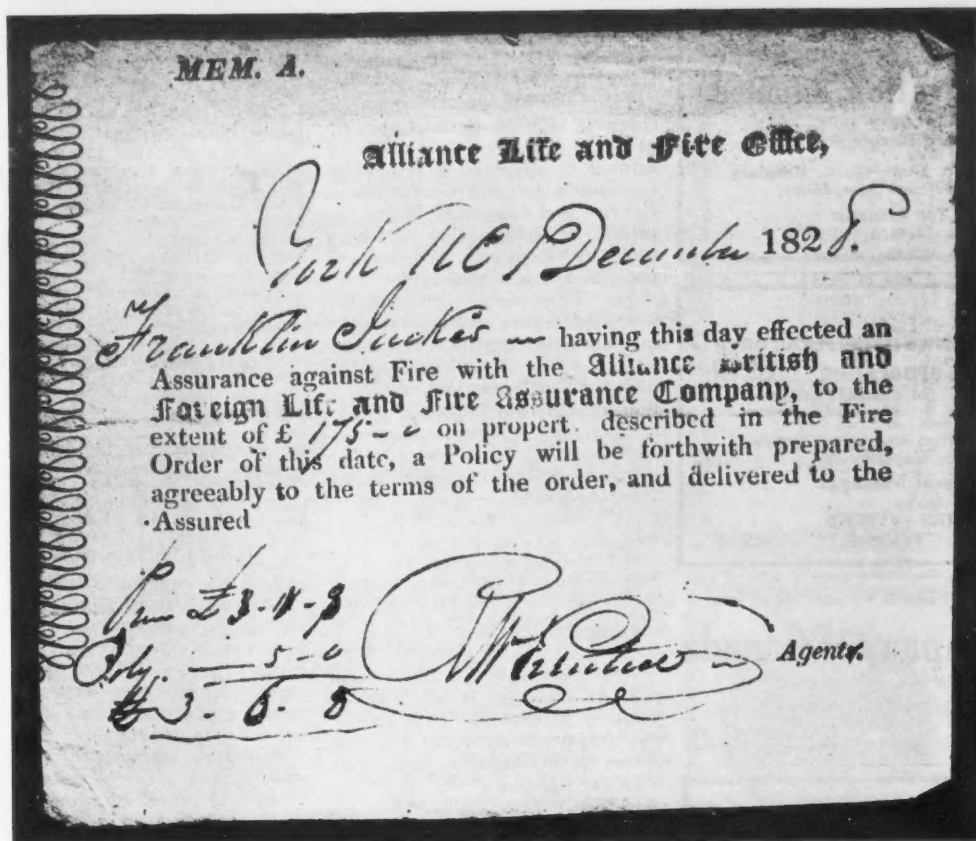 MEM. A.
Alliance Life and Fire Office,
York UC 1 December 1828.
Mr
Franklin Jackes having this day effected an
Assurance against Fire with the Alliance British and
Foreign Life and Fire Assurance Company, to the
extent of £ 175-0 on propert described in the Fire
Order of this date, a Policy will be forthwith prepared,
agreeably to the terms of the order, and delivered to the
Assured
Prem £3-
Poly. 5-0
£3-6-8
Agent.